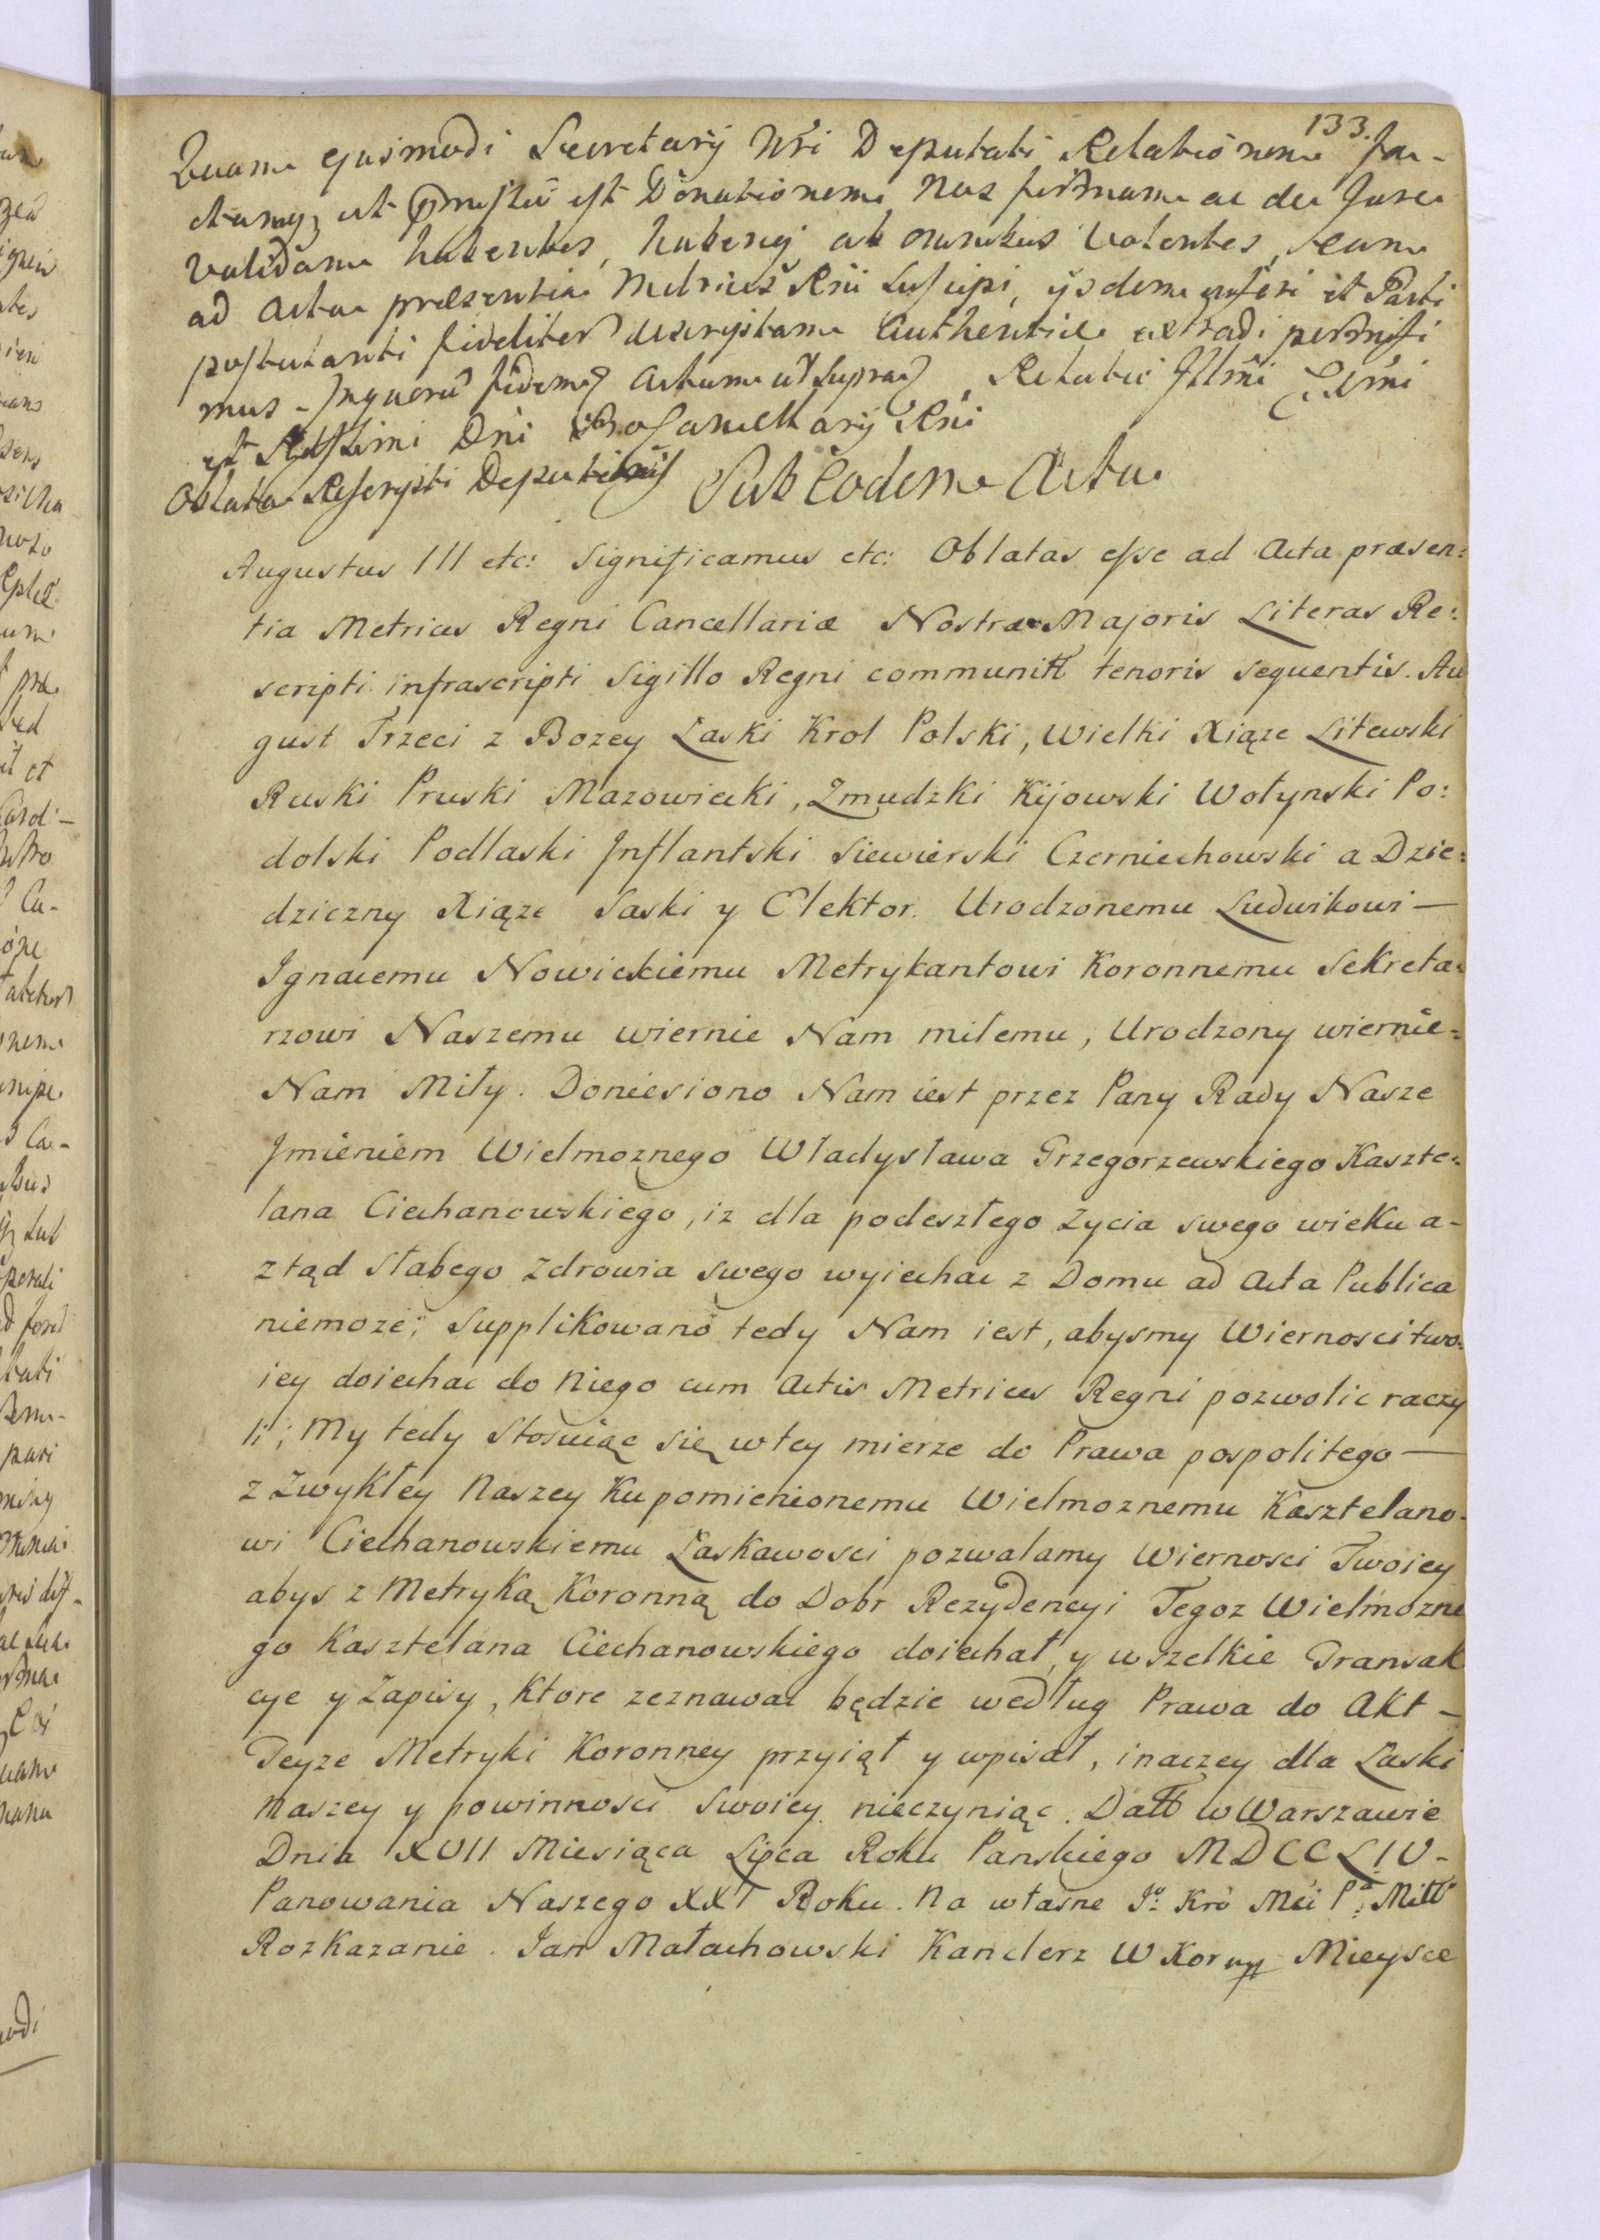 133.
Quam ejusmodi Secretarÿ Nři Deputati Relationem fa-
ctamqȝ ut est Donationem Nos firmam ac de Jure
validam habentes, haberiqȝ ab omnibus volentes, eam
ad Acta præsentia Metrices Rni Suscipi, ÿsdem inseri et Parti
postulanti fideliter descriptam authentice extradi permisi
mus - Jnquorū fidem Actum ut Supra Relatio Jllmi Exmi
et Rdssimi Dni ProCancellarÿ Rni
Oblata Rescripti Sub Eodem Actu
Augustus III etc: Significamus etc: Oblatas esse ad Acta præsen:
tia Metrices Regni Cancellariæ Nostræ Majoris Literas Re:
scripti infrascripti Sigillo Regni communitt tenoris sequentis. Au
gust Trzeci z Bozey Łaski Krol Polski, Wielki Xiąze Litewski
Ruski Pruski Mazowiecki, Zmudzki Kijowski Wołynski Po:
dolski Podlaski Jnflantski Siewierski Czerniechowski a Dzie:
dziczny Xiąze Saski y Elektor. Urodzonemu Ludwikowi —
Ignacemu Nowickiemu Metrykantowi Koronnemu Sekreta:
rzowi Naszemu wiernie Nam miłemu, Urodzony wiernie:
Nam Miły. Doniesiono Nam iest przez Pany Rady Nasze
Jmieniem Wielmoznego Władysława Grzegorzewskiego Kaszte:
lana Ciechanowskiego, iz dla podeszłego Zycia swego wieku a-
ztąd słabego Zdrowia swego wyiechac z Domu ad Acta Publica
niemoze; Supplikowano tedy Nam iest, abysmy Wiernosci two:
iey doiechac do Niego cum Actis Metrices Regni pozwolic raczy
li; My tedy Stosuiąc się wtey mierze do Prawa pospolitego —
z Zwykłey Naszey Ku pomienionemu Wielmoznemu Kasztelano-
wi Ciechanowskiemu Łaskawosci pozwalamy Wiernosci Twoiey
abys z Metryką Koronną do Dobr Rezydencyi Tegoz Wielmozne
go Kasztelana Ciechanowskiego doiechał, y wszelkie Transak
cye y Zapisy, Ktore zeznawac będzie według Prawa do Akt -
Teyze Metryki Koronney przyiął y wpisał, inaczey dla Łaski
Naszey y powinnosci Swoiey nieczyniąc. Datt w Warszawie
Dnia XVII Miesiąca Lipca Roku Panskiego MDCCLIV -
Panowania Naszego XXI Roku. Na własne Jº Kró Mći Pª Miłłº
Rozkazanie. Jan Małachowski Kanclerz W Kornny Mieysce